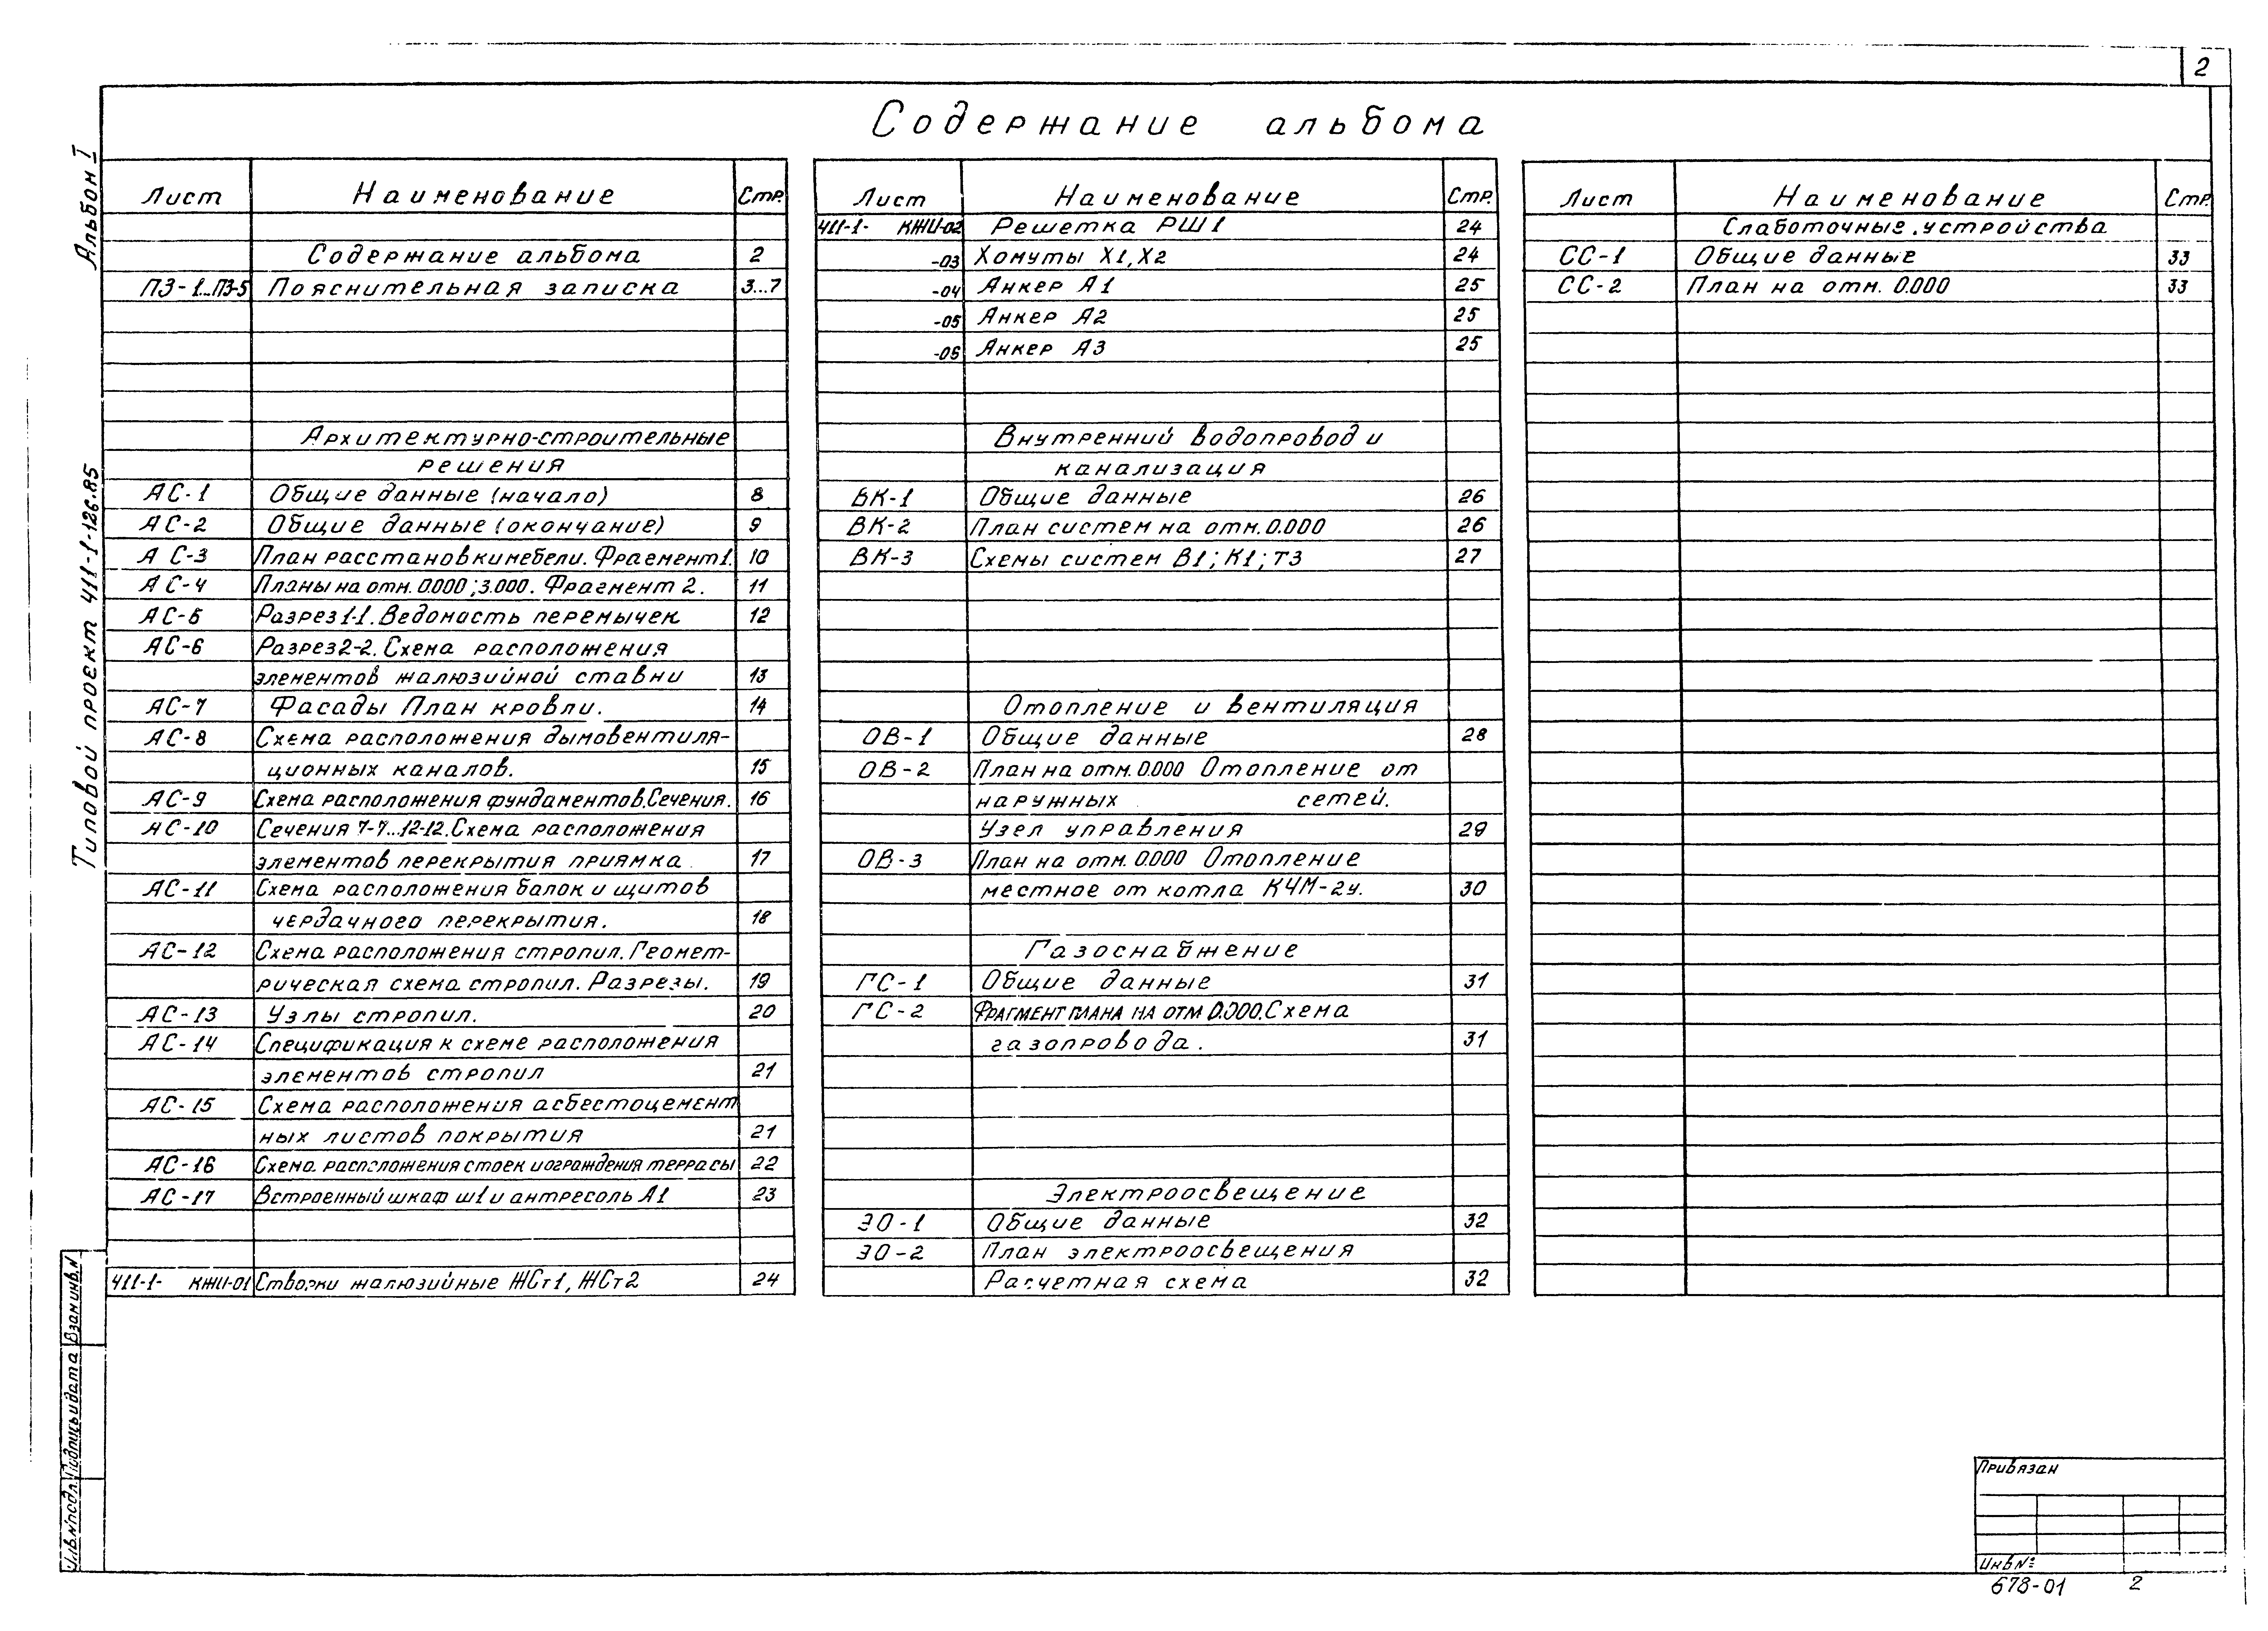 2
Содержание альбома
Альбом I
Типовой проект 411-1-126.85
Лист Наименование Стр.
Содержание альбома 2
ПЗ-1...ПЗ-5 Пояснительная записка 3...7
Архитектурно-строительные
решения
АС-1 Общие данные (начало) 8
АС-2 Общие данные (окончание) 9
АС-3 План расстановки мебели. Фрагмент 1. 10
АС-4 Планы на отм. 0.000; 3.000. Фрагмент 2. 11
АС-5 Разрез 1-1. Ведомость перемычек 12
АС-6 Разрез 2-2. Схема расположения
элементов жалюзийной ставни 13
АС-7 Фасады План кровли. 14
АС-8 Схема расположения дымовентиля-
ционных каналов. 15
АС-9 Схема расположения фундаментов. Сечения. 16
АС-10 Сечения 7-7...12-12. Схема расположения
элементов перекрытия приямка 17
АС-11 Схема расположения балок и щитов
чердачного перекрытия. 18
АС-12 Схема расположения стропил. Геомет-
рическая схема стропил. Разрезы. 19
АС-13 Узлы стропил. 20
АС-14 Спецификация к схеме расположения
элементов стропил 21
АС-15 Схема расположения асбестоцемент
ных листов покрытия 21
АС-16 Схема расположения стоек и ограждения террасы 22
АС-17 Встроенный шкаф ш1 и антресоль А1 23
411-1- КЖИ-01 Створки жалюзийные ЖСт1, ЖСт2 24
Лист Наименование Стр.
411-1- КЖИ-02 Решетка РШ1 24
-03 Хомуты Х1, Х2 24
-04 Анкер А1 25
-05 Анкер А2 25
-06 Анкер А3 25
Внутренний водопровод и
канализация
ВК-1 Общие данные 26
ВК-2 План систем на отм. 0.000 26
ВК-3 Схемы систем В1; К1; Т3 27
Отопление и вентиляция
ОВ-1 Общие данные 28
ОВ-2 План на отм. 0.000 Отопление от
наружных сетей.
Узел управления 29
ОВ-3 План на отм. 0.000 Отопление
местное от котла КЧМ-2у. 30
Газоснабжение
ГС-1 Общие данные 31
ГС-2 Фрагмент плана на отм 0.000. Схема
газопровода. 31
Электроосвещение
ЭО-1 Общие данные 32
ЭО-2 План электроосвещения
Расчетная схема 32
Лист Наименование Стр.
Слаботочные устройства
СС-1 Общие данные 33
СС-2 План на отм. 0.000 33
Взам инв.N
Подпись и дата
Инв.N подл.
Привязан
Инв №
678-01 2